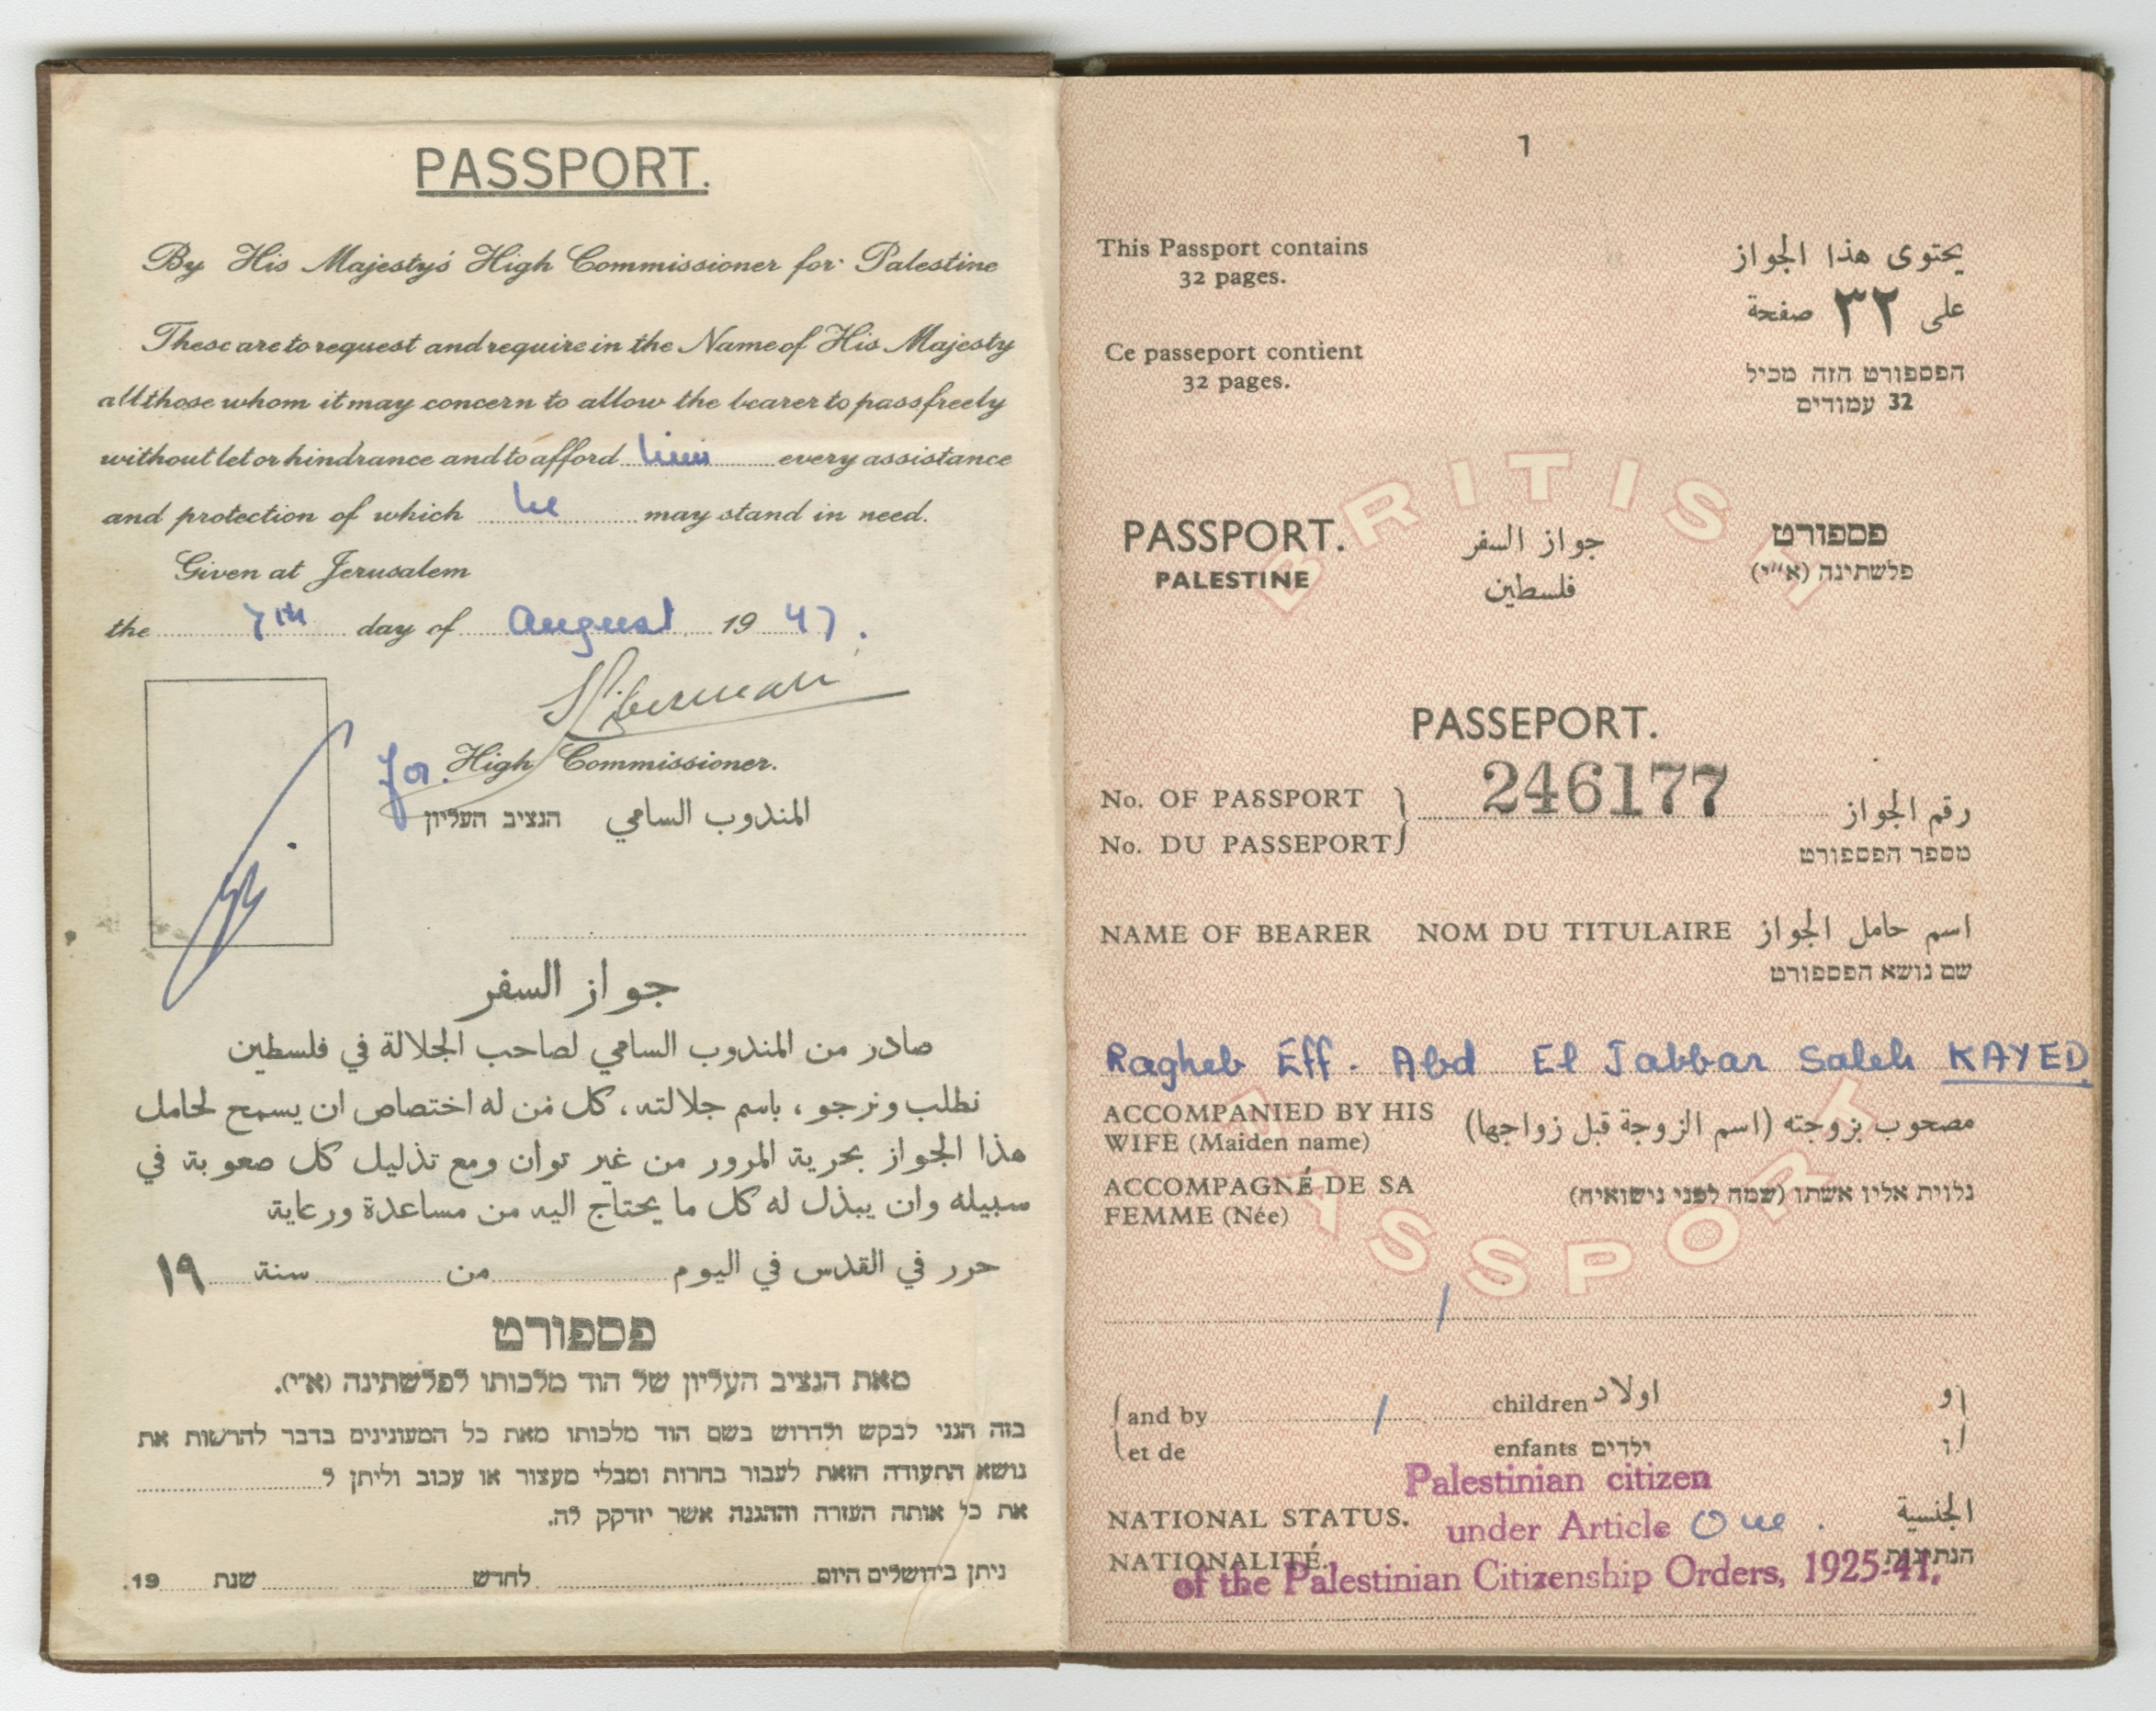 PASSPORT.
By His Majesty's High Commissioner for Palestine
These are to request and require in the Name of His Majesty
all those whom it may concern to allow the bearer to pass freely
without let or hindrance and to afford him every assistance
and protection of which he may stand in need.
Given at Jerusalem
the 7th day of August 19 47.
for High Commissioner.
הנציב העליון المندوب السامي
جواز السفر
صادر من المندوب السامي لصاحب الجلالة في فلسطين
نطلب ونرجو، باسم جلالته، كل من له اختصاص ان يسمح لحامل
هذا الجواز بحرية المرور من غير توان ومع تذليل كل صعوبة في
سبيله وان يبذل له كل ما يحتاج اليه من مساعدة ورعاية
حرر في القدس في اليوم من سنة ١٩
פספורט
מאת הנציב העליון של הוד מלכותו לפלשתינה (א״י).
בזה הנני לבקש ולדרוש בשם הוד מלכותו מאת כל המעונינים בדבר להרשות את
נושא התעודה הזאת לעבור בחרות ומבלי מעצור או עכוב וליתן ל
את כל אותה העזרה וההגנה אשר יזדקק לה.
ניתן בירושלים היום לחדש שנת 19.
1
This Passport contains
32 pages.
يحتوى هذا الجواز
على ٣٢ صفحة
Ce passeport contient
32 pages.
הפספורט הזה מכיל
32 עמודים
BRITISH
PASSPORT. جواز السفر פספורט
PALESTINE فلسطين פלשתינה (א״י)
PASSEPORT.
No. OF PASSPORT 246177 رقم الجواز
No. DU PASSEPORT מספר הפספורט
NAME OF BEARER NOM DU TITULAIRE اسم حامل الجواز
שם נושא הפספורט
Ragheb Eff. Abd El Jabbar Saleh KAYED
ACCOMPANIED BY HIS
WIFE (Maiden name)
مصحوب بزوجته (اسم الزوجة قبل زواجها)
ACCOMPAGNÉ DE SA
FEMME (Née)
נלוית אליו אשתו (שמה לפני נישואיה)
PASSPORT
/
and by / children اولاد و
et de enfants ילדים ו
Palestinian citizen
NATIONAL STATUS. under Article One. الجنسية
NATIONALITÉ. הנתינות
of the Palestinian Citizenship Orders, 1925-41,